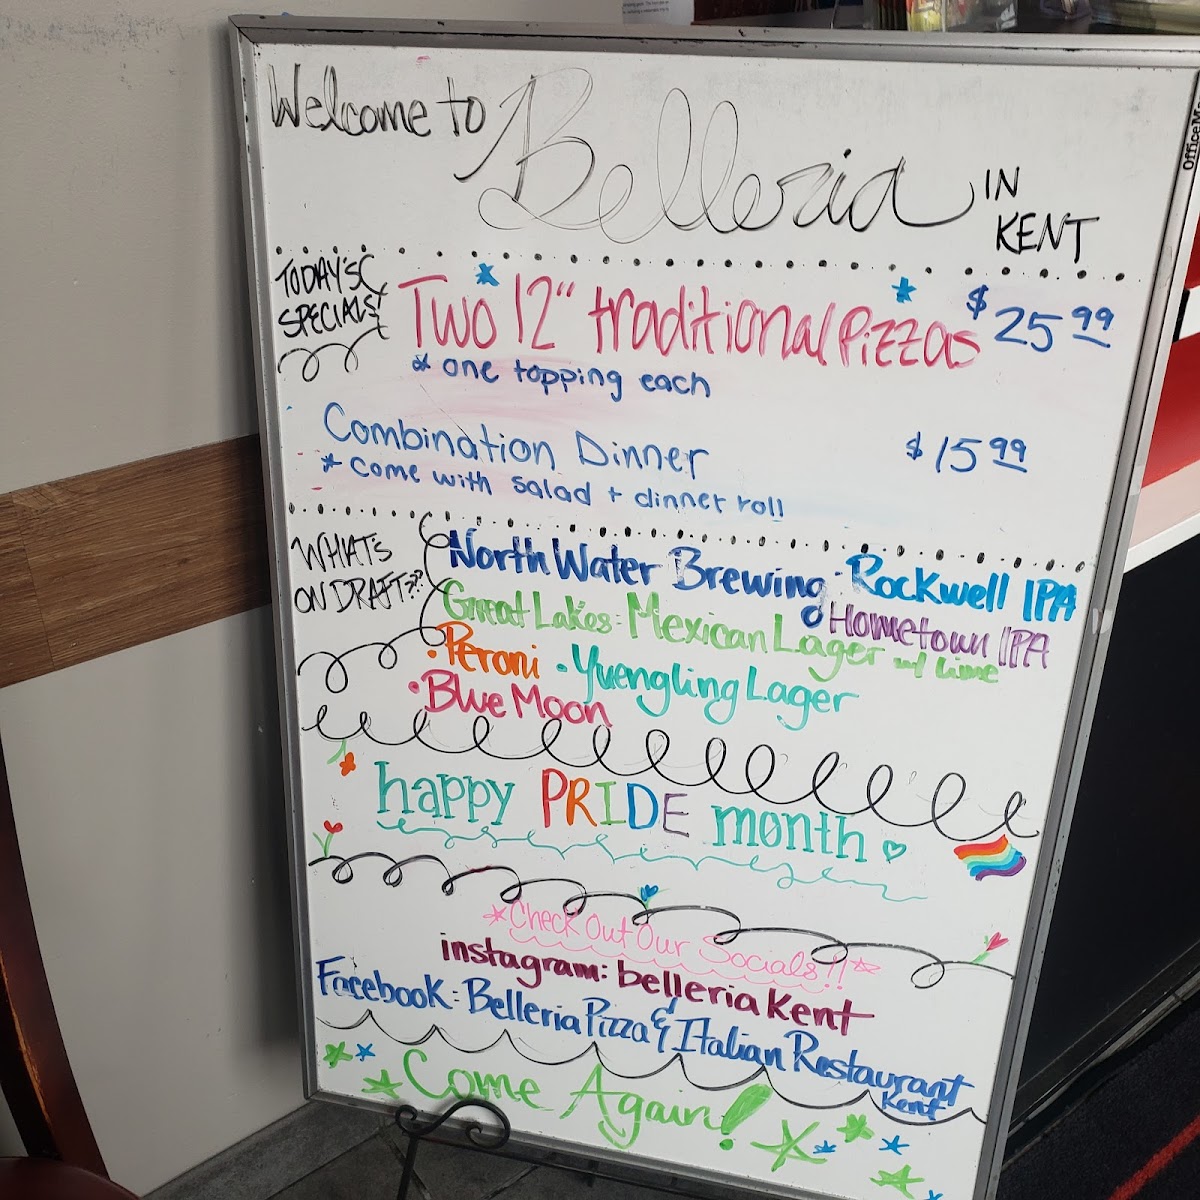 Welcome to Belleria IN KENT
TODAY'S SPECIALS!
Two 12" traditional Pizzas $25.99
* one topping each
Combination Dinner $15.99
* come with salad + dinner roll
WHAT'S ON DRAFT???
North Water Brewing: Rockwell IPA
Hometown IPA
Great Lakes: Mexican Lager w/ lime
• Peroni • Yuengling Lager
• Blue Moon
happy PRIDE month
*Check Out Our Socials!!*
instagram: belleria Kent
Facebook: Belleria Pizza & Italian Restaurant
Kent
Come Again!